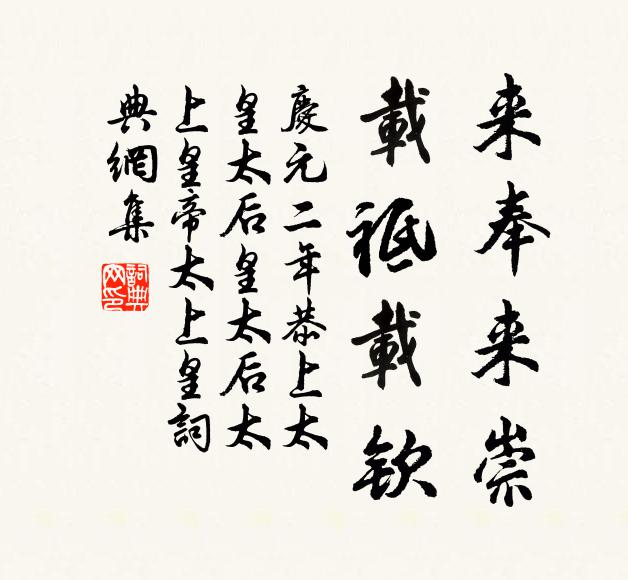 来奉来崇
載祗載欽
慶元二年恭上太
皇太后皇太后太
上皇帝太上皇詞
典網集
詞典网印